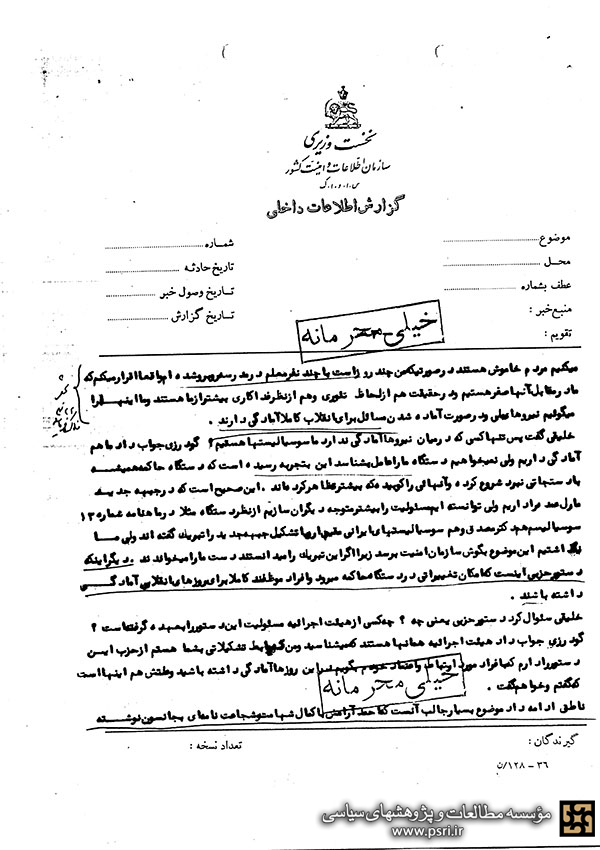 نخست وزیری
سازمان اطلاعات و امنیت کشور
س.ا.و.ا.ک
گزارش اطلاعات داخلی
موضوع
محل
عطف بشماره
منبع خبر :
تقویم :
شماره
تاریخ حادثه
تاریخ وصول خبر
تاریخ گزارش
خیلی محرمانه
میکنیم مردم خاموش هستند در صورتیکه من چند روز است با چند نفر معلم در مدرسه روبرو شده ام واقعا اقرار میکنم که
ما در مقابل آنها صفر هستیم و در حقیقت هم از لحاظ تئوری و هم از نظر فداکاری بیشتر از ما هستند و ما اینها را
میگوئیم نیروهای ملی و در صورت آماده شدن مسائل برای انقلاب کاملا آمادگی دارند .
خلیقی گفت پس تنها کسی که در میان نیروها آمادگی ندارد ما سوسیالیستها هستیم ؟ گودرزی جواب داد ما هم
آمادگی داریم ولی نمیخواهیم دستگاه ما را عامل بشناسد این تجربه رسیده است که دستگاه حاکمه همیشه
باید ستجاتی نبرد شروع کرده و آنهائی را کوبیده که بیشتر تظاهر کرده اند . این صحیح است که در جبهه جدید
ما رل عمده را داریم ولی توانسته ایم مسئولیت را بیشتر متوجه دیگران سازیم از نظر دستگاه مثلا در ماهنامه شماره ۱۳
سوسیالیسم هم دکتر مصدق و هم سوسیالیستهای ایرانی مقیم اروپا تشکیل جبهه جدید را تبریک گفته اند ولی ما
نگذاشتیم این موضوع بگوش سازمان امنیت برسد زیرا اگر این تبریک را میدانستند دست ما را میخواندند . دیگر اینکه
دستور حزبی اینست که امکان تغییراتی در دستگاه حاکمه میرود و افراد موظفند کاملا برای روزهای انقلابی آمادگی
داشته باشند .
خلیقی سئوال کرد دستور حزبی یعنی چه ؟ چه کسی از هیئت اجرائیه مسئولیت این دستور را بعهده گرفته است ؟
گودرزی جواب داد هیئت اجرائیه همانها هستند که میشناسید و من که رابط تشکیلاتی بشما هستم از حزب این
دستور را دارم که با افراد مورد ارتباط و اعتماد خودم بگویم در این روزها آمادگی داشته باشید و علتش هم اینها است
که گفتم و خواهم گفت .
خیلی محرمانه
ناطق ادامه داد موضوع بسیار جالب آنست که احمد آرامش با کمال شهامت و شجاعت نامه ای به جانسون نوشته
گیرندگان :
تعداد نسخه :
۳۶ - ۱۲۸/ن
مؤسسه مطالعات و پژوهشهای سیاسی
www.psri.ir